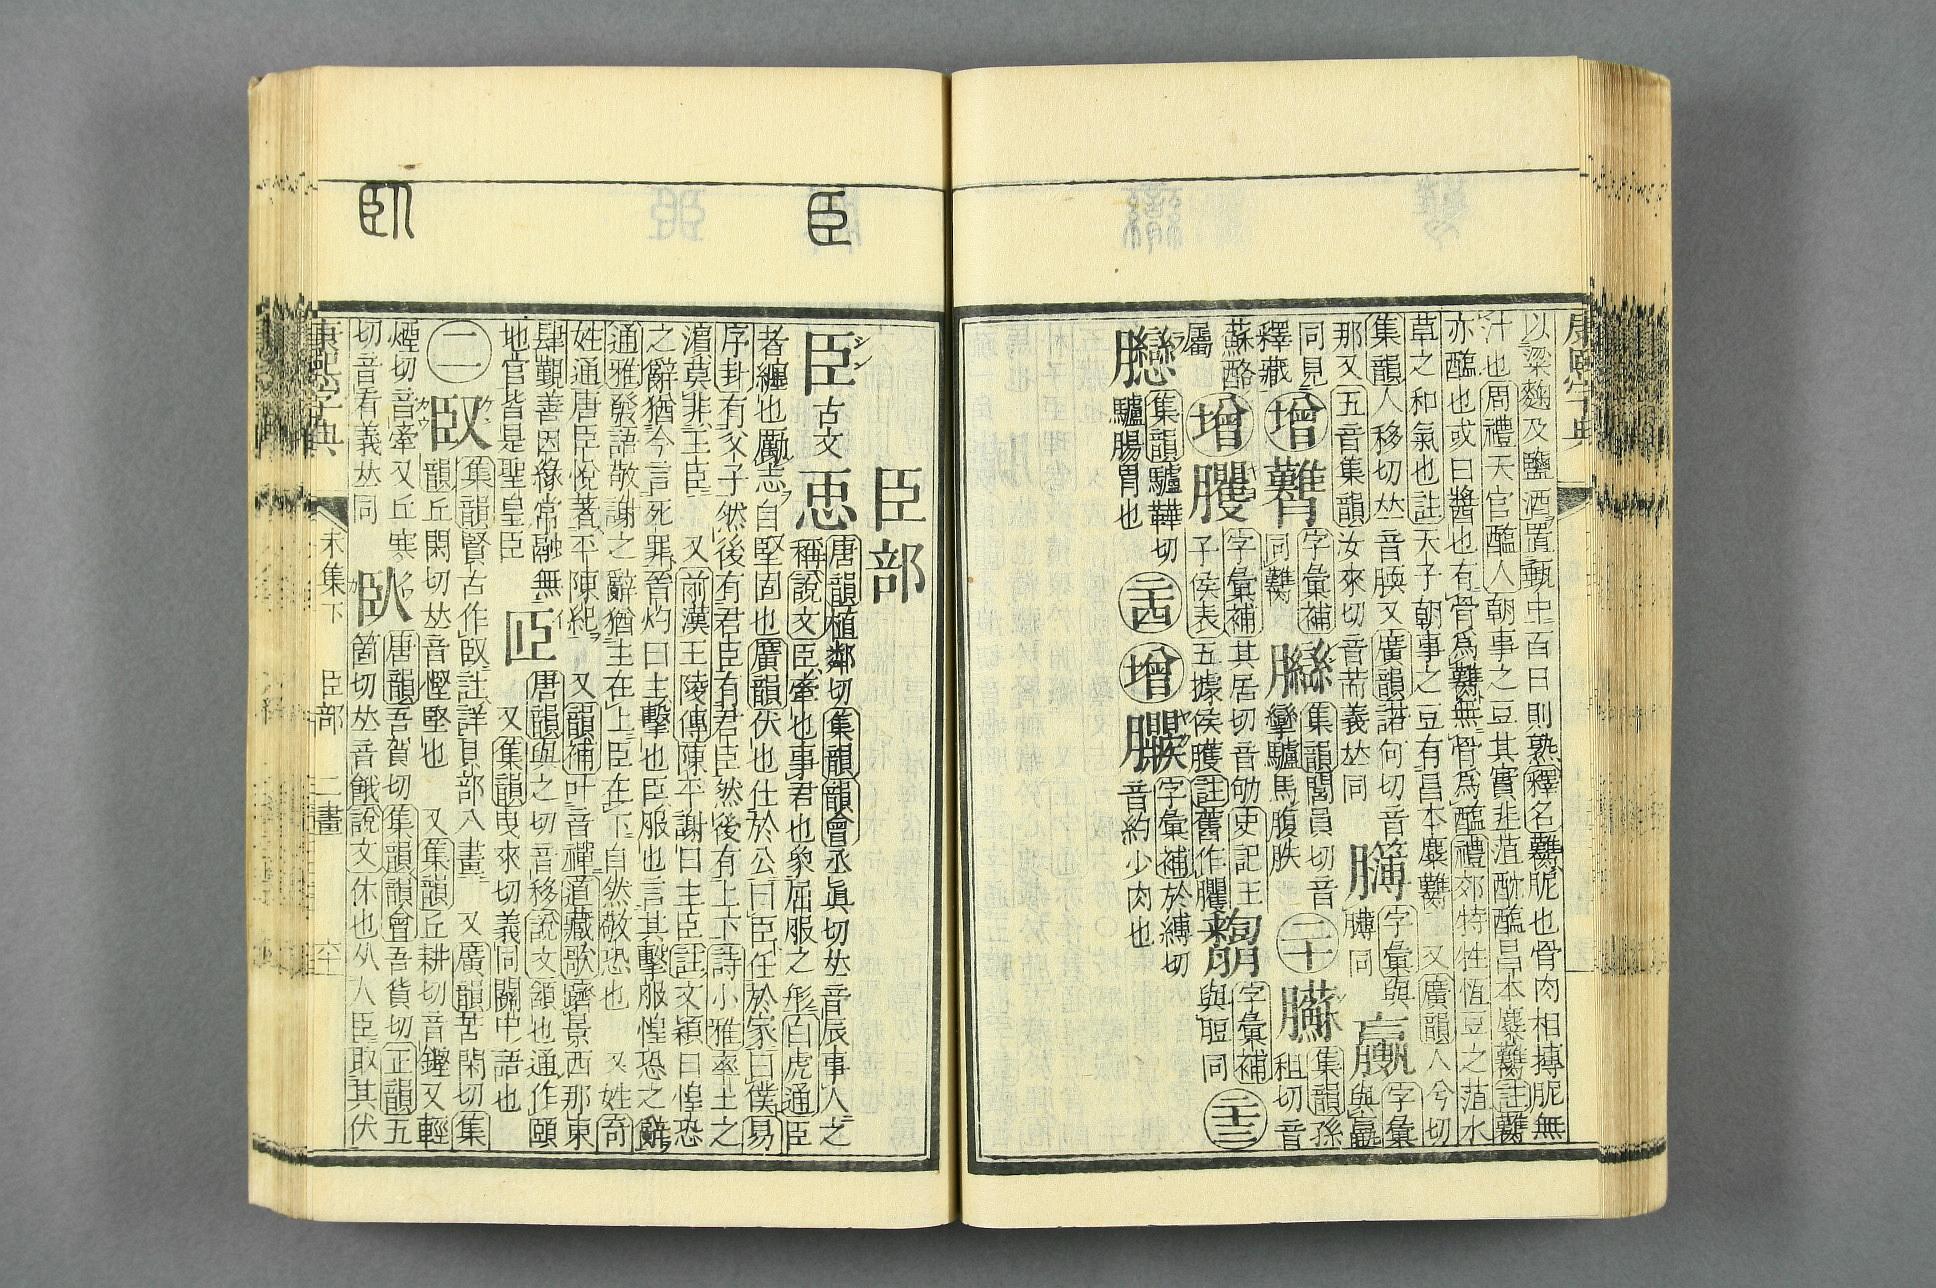 以粱麴及鹽酒置甀中百日則熟釋名臡昵也骨肉相搏昵無
汁也周禮天官醢人朝事之豆其實韭菹醓醢昌本麋臡註臡
亦醢也或曰醬也有骨爲臡無骨爲醢禮郊特牲恆豆之菹水
草之和氣也註天子朝事之豆有昌本麋臡 又廣韻人兮切
集韻人移切𠀤音腝又廣韻諾何切音
那又五音集韻汝來切音荋義𠀤同
膊同
字彙
同見
釋藏
增
字彙補
同臡
集韻閭員切音
攣驢馬腹胅
二十
集韻孫
租切音
蘇酪
屬
增
臞
字彙補其居切音劬史記主
子侯表五據侯臞註舊作臞
字彙補
與䐈同
二十三
集韻驢鞾切
驢腸胃也
二十四
增
字彙補於縛切
音約少肉也
臣部
臣
臣
シン
古文
唐韻植鄰切集韻韻會丞眞切𠀤音辰事人之
稱說文臣牽也事君也象屈服之形白虎通臣
者纏也勵志自堅固也廣韻伏也仕於公曰臣任於家曰僕易
序卦有父子然後有君臣有君臣然後有上下詩小雅率土之
濱莫非王臣 又前漢王陵傳陳平謝曰主臣註文穎曰惶恐
之辭猶今言死罪晉灼曰主擊也臣服也言其擊服惶恐之辭
通雅發語敬謝之辭猶主在上臣在下自然敬恐也 又姓奇
姓通唐臣悅著平陳紀 又韻補叶音禪道藏歌躋景西那東
肆觀善因緣常融無
地官皆是聖皇臣
𦣝
唐韻與之切音移說文頷也通作頤
又集韻曳來切義同關中語也
二
臤
集韻賢古作臤註詳貝部八畫 又廣韻苦閑切集
韻丘閑切𠀤音慳堅也 又集韻丘耕切音鏗又輕
煙切音牽又丘寒
切音看義𠀤同
臥
臥
唐韻吾貨切集韻韻會吾貨切正韻五
箇切𠀤音餓說文休也从人臣取其伏
康熙字典
未集下
臣部
二畫
康熙字典